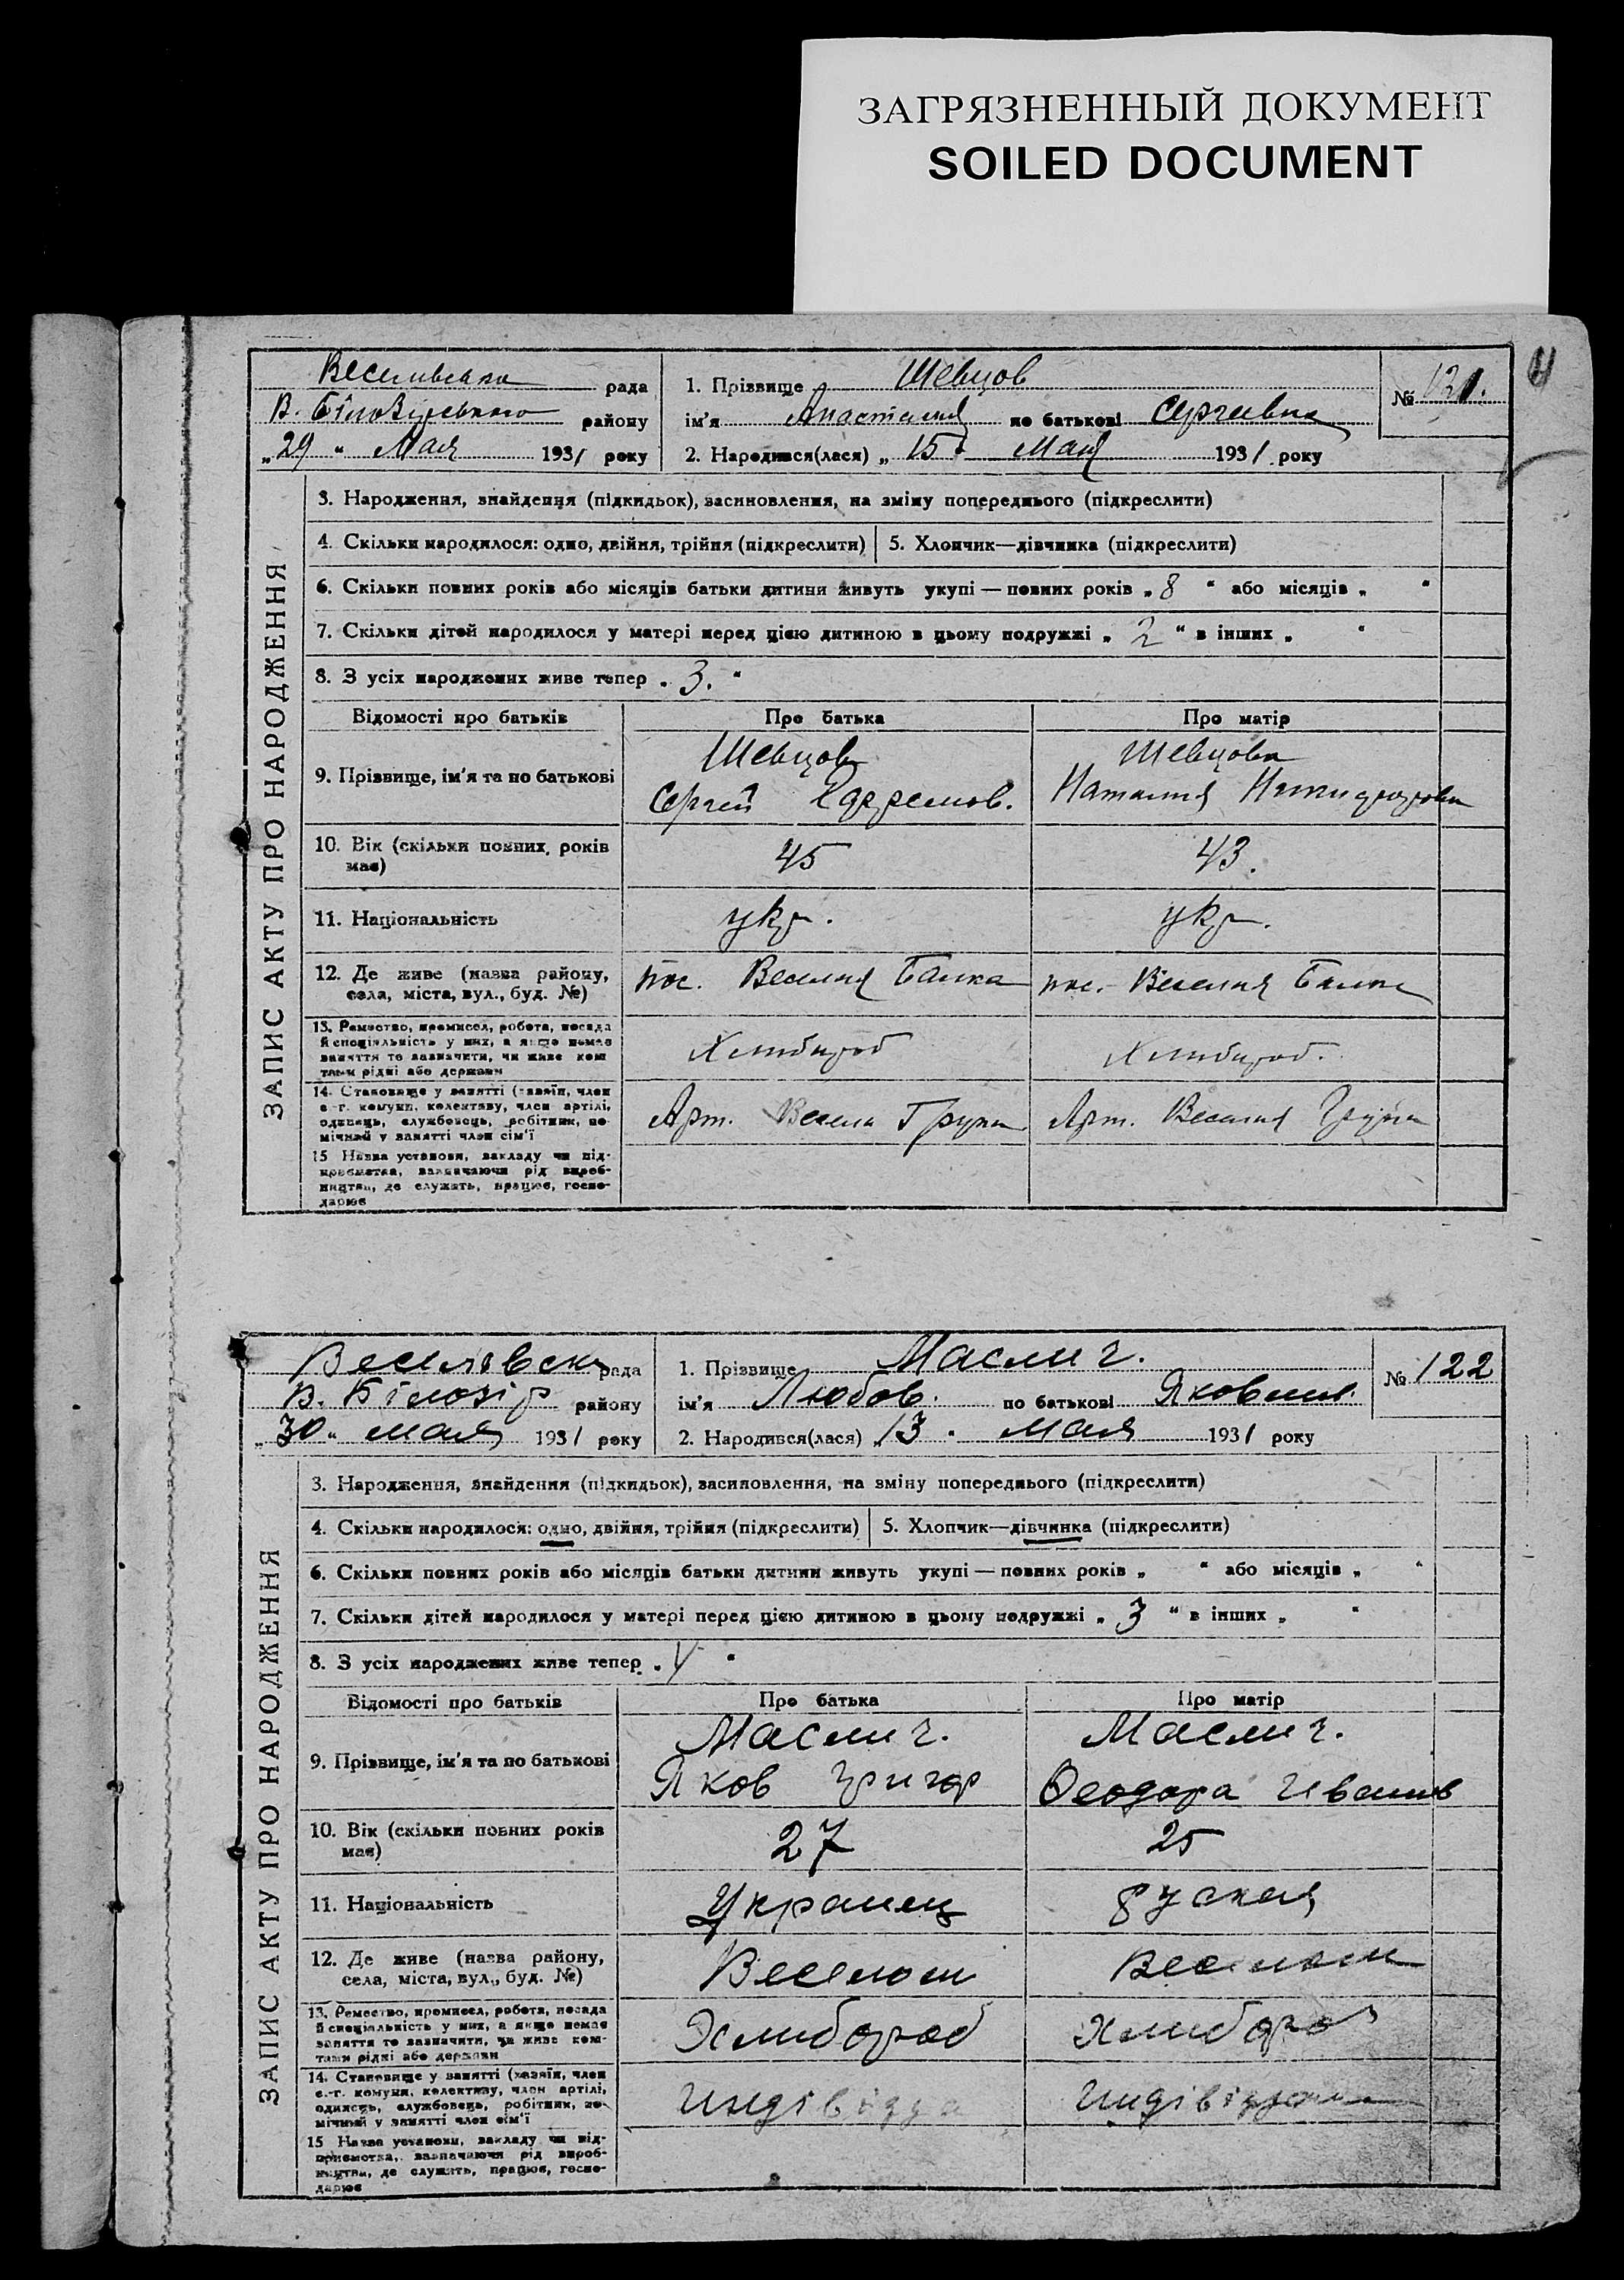 ЗАГРЯЗНЕННЫЙ ДОКУМЕНТ
SOILED DOCUMENT
Веселівська рада
В. Білозірського району
„29“ Мая 1931 року
1. Прізвище Шевцов
ім'я Анастасия по батькові Сергеевна
2. Народився(лася) „15 Мая 1931 року
№ 121.
ЗАПИС АКТУ ПРО НАРОДЖЕННЯ
3. Народження, знайдення (підкидьок), засиновлення, на зміну попереднього (підкреслити)
4. Скільки народилося: одно, двійня, трійня (підкреслити) 5. Хлопчик—дівчинка (підкреслити)
6. Скільки повних років або місяців батьки дитини живуть укупі — повних років „8“ або місяців „ “
7. Скільки дітей народилося у матері перед цією дитиною в цьому подружжі „2“ в інших „ “
8. З усіх народжених живе тепер „3.“
Відомості про батьків Про батька Про матір
9. Прізвище, ім'я та по батькові
Шевцов
Сергей Ефремов.
Шевцова
Наталия
10. Вік (скільки повних років має) 45 43.
11. Національність укр. укр.
12. Де живе (назва району, села, міста, вул., буд. №)
пос. Веселая Балка пос. Веселая Балка
13. Ремество, промисел, робота, посада й спеціяльність у них, а якщо немає заняття то зазначити, чи живе коштами рідні або держави
Хлибороб Хлибороб.
14. Становище у занятті (хазяїн, член с.-г. комуни, колективу, член артілі, одинець, службовець, робітник, помічний у занятті член сім'ї
Арт. Весела Група Арт. Веселая Група
15 Назва установи, закладу чи підприємства, зазначаючи рід виробництва, де служить, працює, господарює
Веселовск рада
В. Білозір району
„30“ мая 1931 року
1. Прізвище Маслич.
ім'я Любов. по батькові Яковлив.
2. Народився(лася) „13. Мая 1931 року
№ 122
ЗАПИС АКТУ ПРО НАРОДЖЕННЯ
3. Народження, знайдення (підкидьок), засиновлення, на зміну попереднього (підкреслити)
4. Скільки народилося: одно, двійня, трійня (підкреслити) 5. Хлопчик—дівчинка (підкреслити)
6. Скільки повних років або місяців батьки дитини живуть укупі — повних років „ “ або місяців „ “
7. Скільки дітей народилося у матері перед цією дитиною в цьому подружжі „3“ в інших „ “
8. З усіх народжених живе тепер „4“
Відомості про батьків Про батька Про матір
9. Прізвище, ім'я та по батькові
Маслич.
Яков Григор
Маслич.
Феодора Иванов
10. Вік (скільки повних років має) 27 25
11. Національність Украинец руская
12. Де живе (назва району, села, міста, вул., буд. №)
13. Ремество, промисел, робота, посада й спеціяльність у них, а якщо немає заняття то зазначити, чи живе коштами рідні або держави
Хлибороб Хлибороб
14. Становище у занятті (хазяїн, член с.-г. комуни, колективу, член артілі, одинець, службовець, робітник, помічний у занятті член сім'ї
Индівідуа
15 Назва установи, закладу чи підприємства, зазначаючи рід виробництва, де служить, працює, господарює